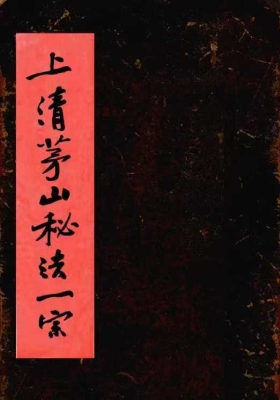 上清茅山秘法一宗